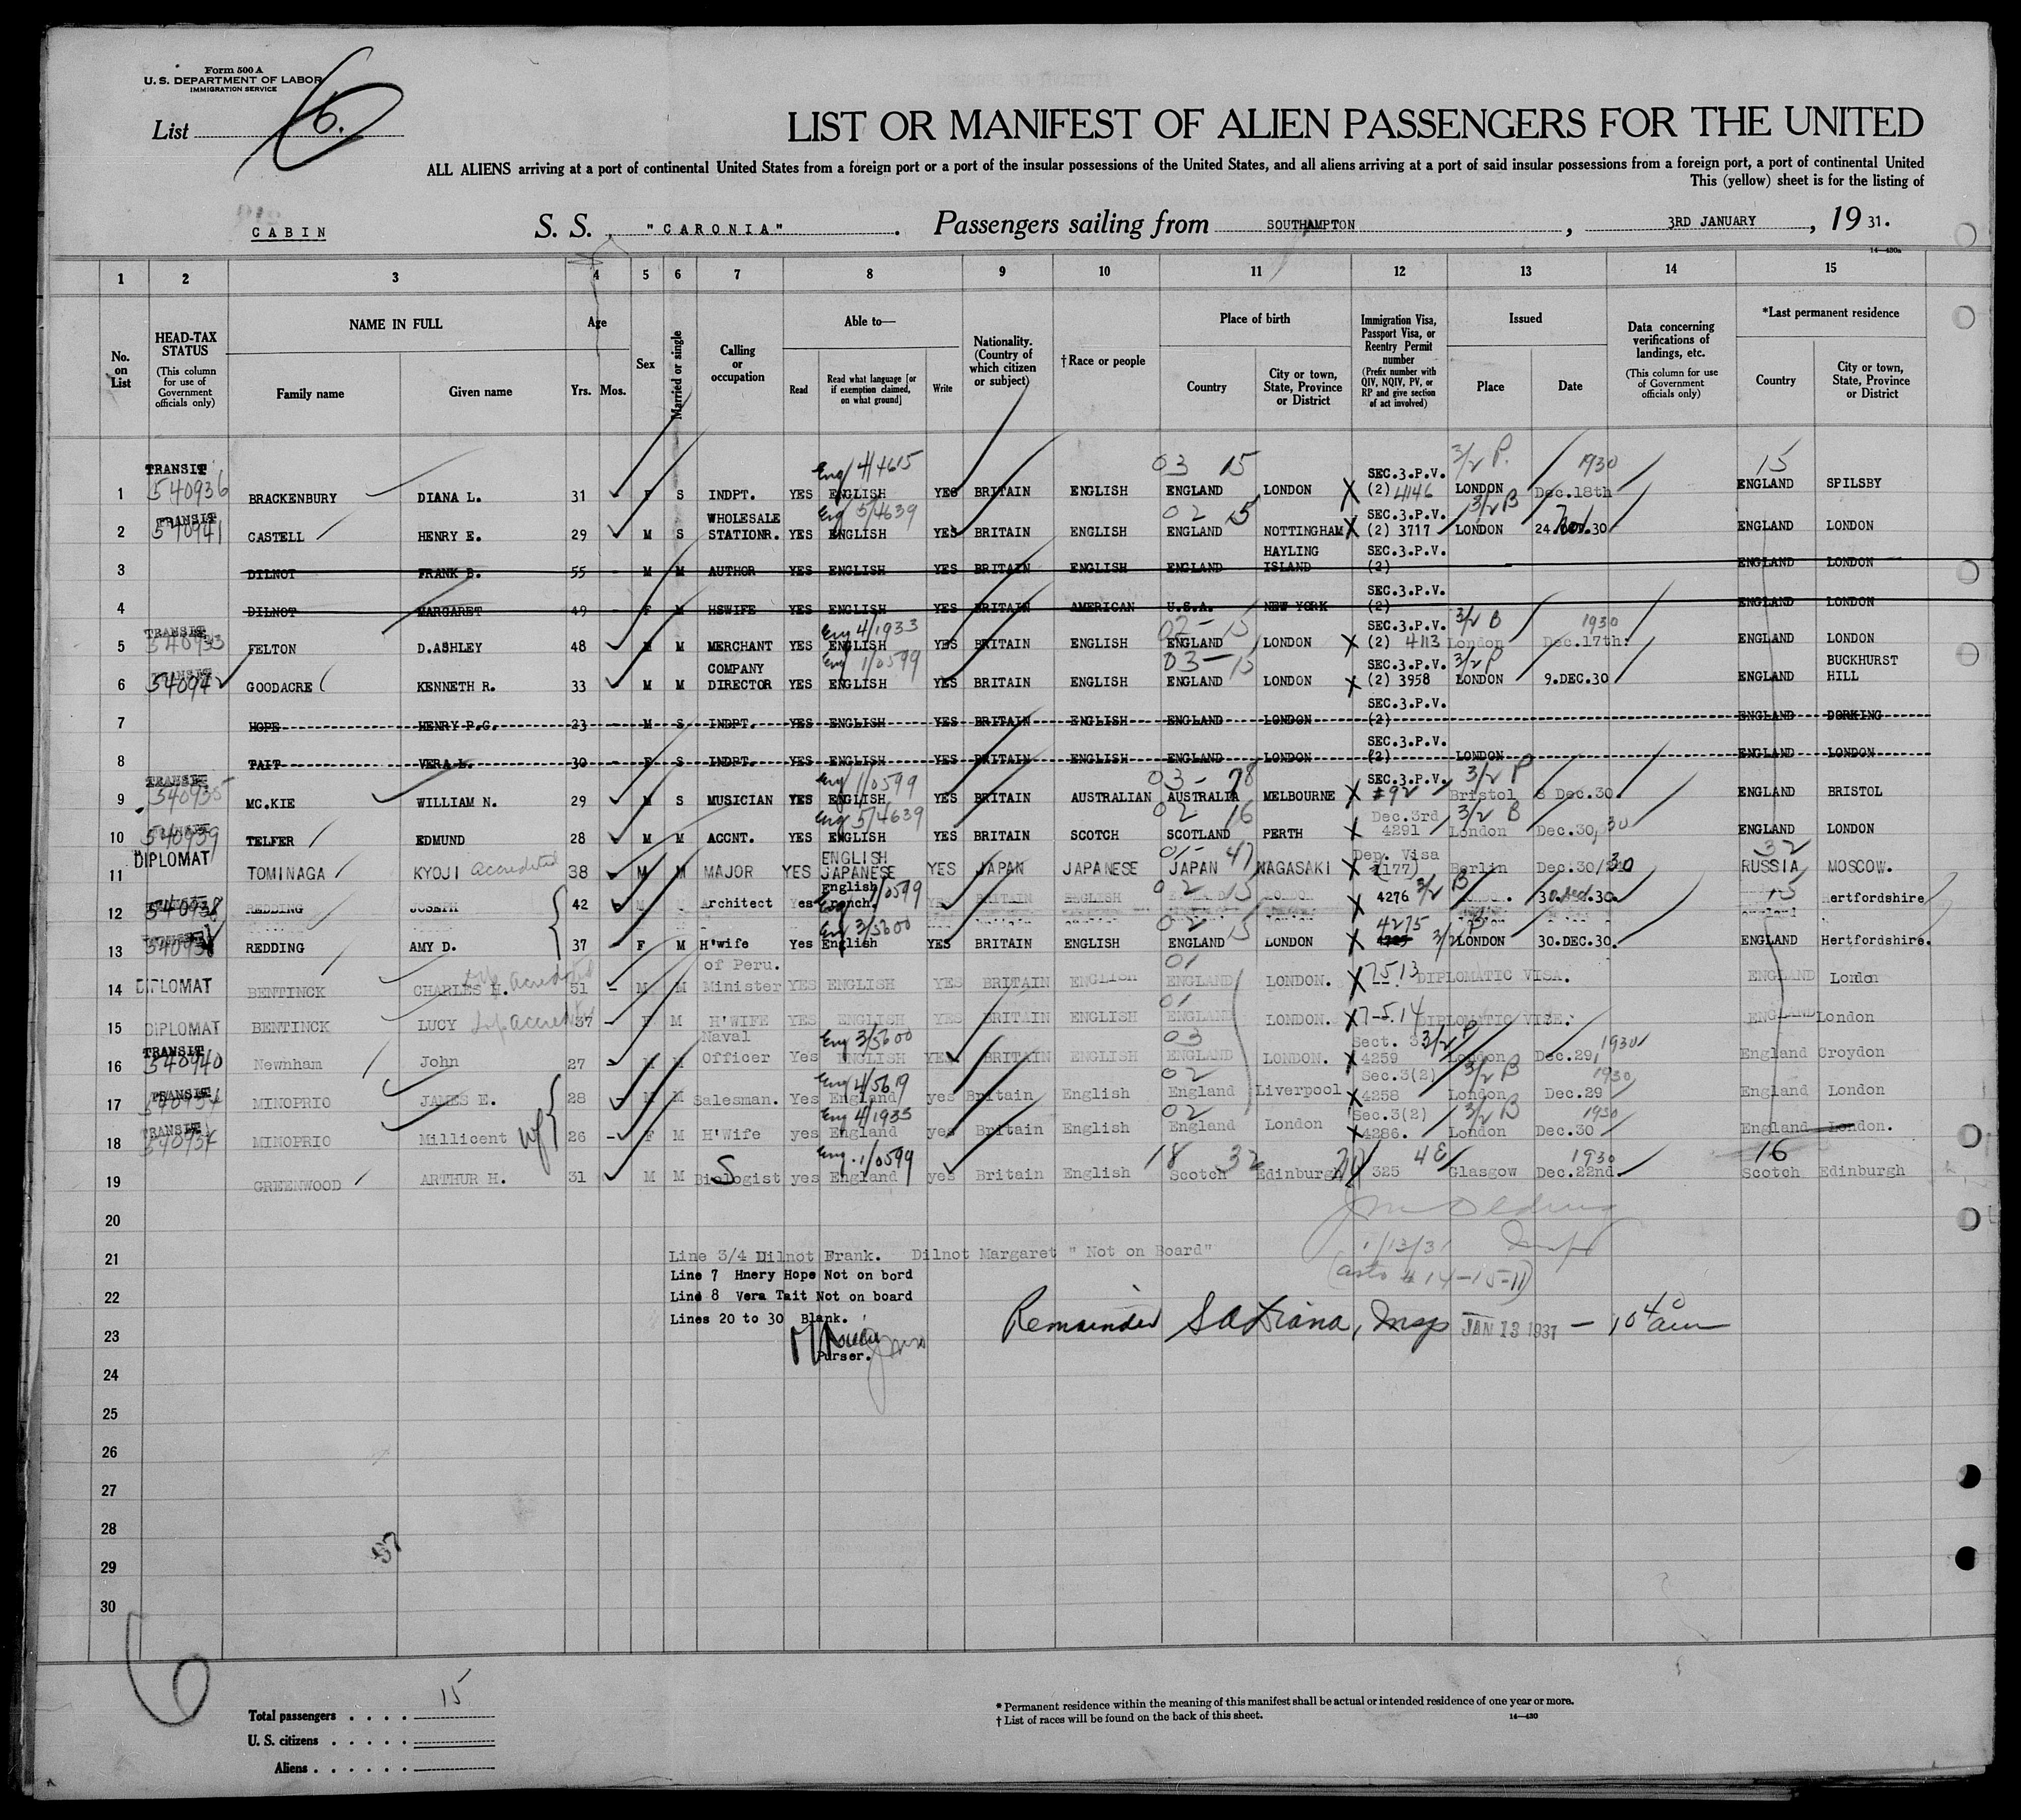 Form 500 A
U. S. DEPARTMENT OF LABOR
IMMIGRATION SERVICE
List 6.
LIST OR MANIFEST OF ALIEN PASSENGERS FOR THE UNITED
ALL ALIENS arriving at a port of continental United States from a foreign port or a port of the insular possessions of the United States, and all aliens arriving at a port of said insular possessions from a foreign port, a port of continental United
This (yellow) sheet is for the listing of
CABIN S. S. "CARONIA" . Passengers sailing from SOUTHAMPTON , 3RD JANUARY , 19 31.
14—430a
1 2 3 4 5 6 7 8 9 10 11 12 13 14 15
No. on List
HEAD-TAX STATUS (This column for use of Government officials only)
NAME IN FULL Family name Given name
Age Yrs. Mos.
Sex
Married or single
Calling or occupation
Able to— Read Read what language [or if exemption claimed, on what ground] Write
Nationality. (Country of which citizen or subject)
†Race or people
Place of birth Country City or town, State, Province or District
Immigration Visa, Passport Visa, or Reentry Permit number (Prefix number with QIV, NQIV, PV, or RP and give section of act involved)
Issued Place Date
Data concerning verifications of landings, etc. (This column for use of Government officials only)
*Last permanent residence Country City or town, State, Province or District
TRANSIT Eng 4/4615 03 15 SEC.3.P.V. 3/2 P. 1930 15
1 540936 BRACKENBURY DIANA L. 31 F S INDPT. YES ENGLISH YES BRITAIN ENGLISH ENGLAND LONDON X (2) 4146 LONDON Dec.18th ENGLAND SPILSBY
TRANSIT WHOLESALE Eng 5/4639 02 15 SEC.3.P.V. 3/2 B
2 540941 CASTELL HENRY E. 29 M S STATIONR. YES ENGLISH YES BRITAIN ENGLISH ENGLAND NOTTINGHAM X (2) 3717 LONDON 24. .30 ENGLAND LONDON
HAYLING SEC.3.P.V.
3 DILNOT FRANK B. 55 - M M AUTHOR YES ENGLISH YES BRITAIN ENGLISH ENGLAND ISLAND (2) ENGLAND LONDON
SEC.3.P.V.
4 DILNOT MARGARET 49 - F M HSWIFE YES ENGLISH YES BRITAIN AMERICAN U.S.A. NEW YORK (2) ENGLAND LONDON
TRANSIT Eng 4/1933 02 - 15 SEC.3.P.V. 3/2 B 1930
5 540933 FELTON D.ASHLEY 48 M M MERCHANT YES ENGLISH YES BRITAIN ENGLISH ENGLAND LONDON X (2) 4113 London Dec.17th. ENGLAND LONDON
TRANSIT COMPANY Eng 1/0599 03 - 15 SEC.3.P.V. 3/2 P BUCKHURST
6 540942 GOODACRE KENNETH R. 33 M M DIRECTOR YES ENGLISH YES BRITAIN ENGLISH ENGLAND LONDON X (2) 3958 LONDON 9.DEC.30 ENGLAND HILL
SEC.3.P.V.
7 HOPE HENRY P.G. 23 - M S INDPT. YES ENGLISH YES BRITAIN ENGLISH ENGLAND LONDON (2) ENGLAND DORKING
SEC.3.P.V.
8 TAIT VERA L. 30 - F S INDPT. YES ENGLISH YES BRITAIN ENGLISH ENGLAND LONDON (2) LONDON ENGLAND LONDON
TRANSIT Eng 1/0599 03 - 78 SEC.3.P.V. 3/2 P
9 540935 MC.KIE WILLIAM N. 29 M S MUSICIAN YES ENGLISH YES BRITAIN AUSTRALIAN AUSTRALIA MELBOURNE X #92 Bristol 8 Dec.30. ENGLAND BRISTOL
Eng 5/4639 02 16 Dec.3rd 3/2 B
10 540939 TELFER EDMUND 28 M M ACCNT. YES ENGLISH YES BRITAIN SCOTCH SCOTLAND PERTH X 4291 London Dec.30, 30 ENGLAND LONDON
DIPLOMAT ENGLISH 01- 47 Visa 32
11 TOMINAGA KYOJI Accredited 38 M M MAJOR YES JAPANESE YES JAPAN JAPANESE JAPAN NAGASAKI X (177) Berlin Dec.30/30 RUSSIA MOSCOW.
English 1/0599 02 15 3/2 B 15
12 540938 REDDING JOSEPH 42 M Architect Yes French. BRITAIN ENGLISH X 4276 30.Dec.30. ertfordshire
Eng 3/5600 02 15 4275
13 REDDING AMY D. 37 F M H'wife Yes English YES BRITAIN ENGLISH ENGLAND LONDON X 3/2 LONDON 30.DEC.30. ENGLAND Hertfordshire.
of Peru. 01
14 DIPLOMAT BENTINCK CHARLES H. 51 - M M Minister YES ENGLISH YES BRITAIN ENGLISH ENGLAND LONDON. X 7513 DIPLOMATIC VISA. ENGLAND London
01
15 DIPLOMAT BENTINCK LUCY 37 - F M H'WIFE YES ENGLISH YES BRITAIN ENGLISH ENGLAND LONDON. X 7-5.14 DIPLOMATIC VISE. ENGLAND London
TRANSIT Naval Eng 3/5600 03 Sect. 3 3/2 P 1930
16 540940 Newnham John 27 - M M Officer Yes ENGLISH YES BRITAIN ENGLISH ENGLAND LONDON. X 4259 London Dec.29, England Croydon
TRANSIT Eng 4/5619 02 Sec.3(2) 3/2 B 1930
17 540937 MINOPRIO JAMES E. 28 M M Salesman. Yes England yes Britain English England Liverpool X 4258 London Dec.29 England London
TRANSIT Eng 4/1935 02 Sec.3(2) 3/2 B 1930
18 MINOPRIO Millicent wf 26 - F M H'Wife yes England yes Britain English England London X 4286. London Dec.30 England London.
Eng. 1/0599 18 32 48 1930 16
19 GREENWOOD ARTHUR H. 31 M M Biologist yes England yes Britain English Scotch Edinburgh 325 Glasgow Dec.22nd. Scotch Edinburgh
20
21 Line 3/4 Dilnot Frank. Dilnot Margaret " Not on Board" 1/13/31 Insp
Line 7 Hnery Hope Not on bord (as to # 14-15-11)
22 Line 8 Vera Tait Not on board
Lines 20 to 30 Blank. Remainder Insp JAN 13 1931 — 10 40 am
23
Purser.
24
25
26
27
28
29
30
6
Total passengers . . . . 15
U. S. citizens . . . . .
Aliens . . . . . .
* Permanent residence within the meaning of this manifest shall be actual or intended residence of one year or more.
† List of races will be found on the back of this sheet. 14—430